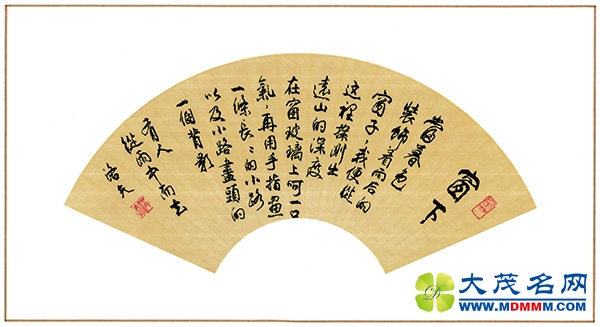 窗下
當暮色
裝飾着雨后的
窗子，我便從
這裡探測出
遠山的深度
在窗玻璃上呵一口
氣，再用手指畫
一條長々的小路
以及小路盡頭的
一個背影
有人
從雨中而去
洛夫
大茂名网
WWW.MDMMM.COM